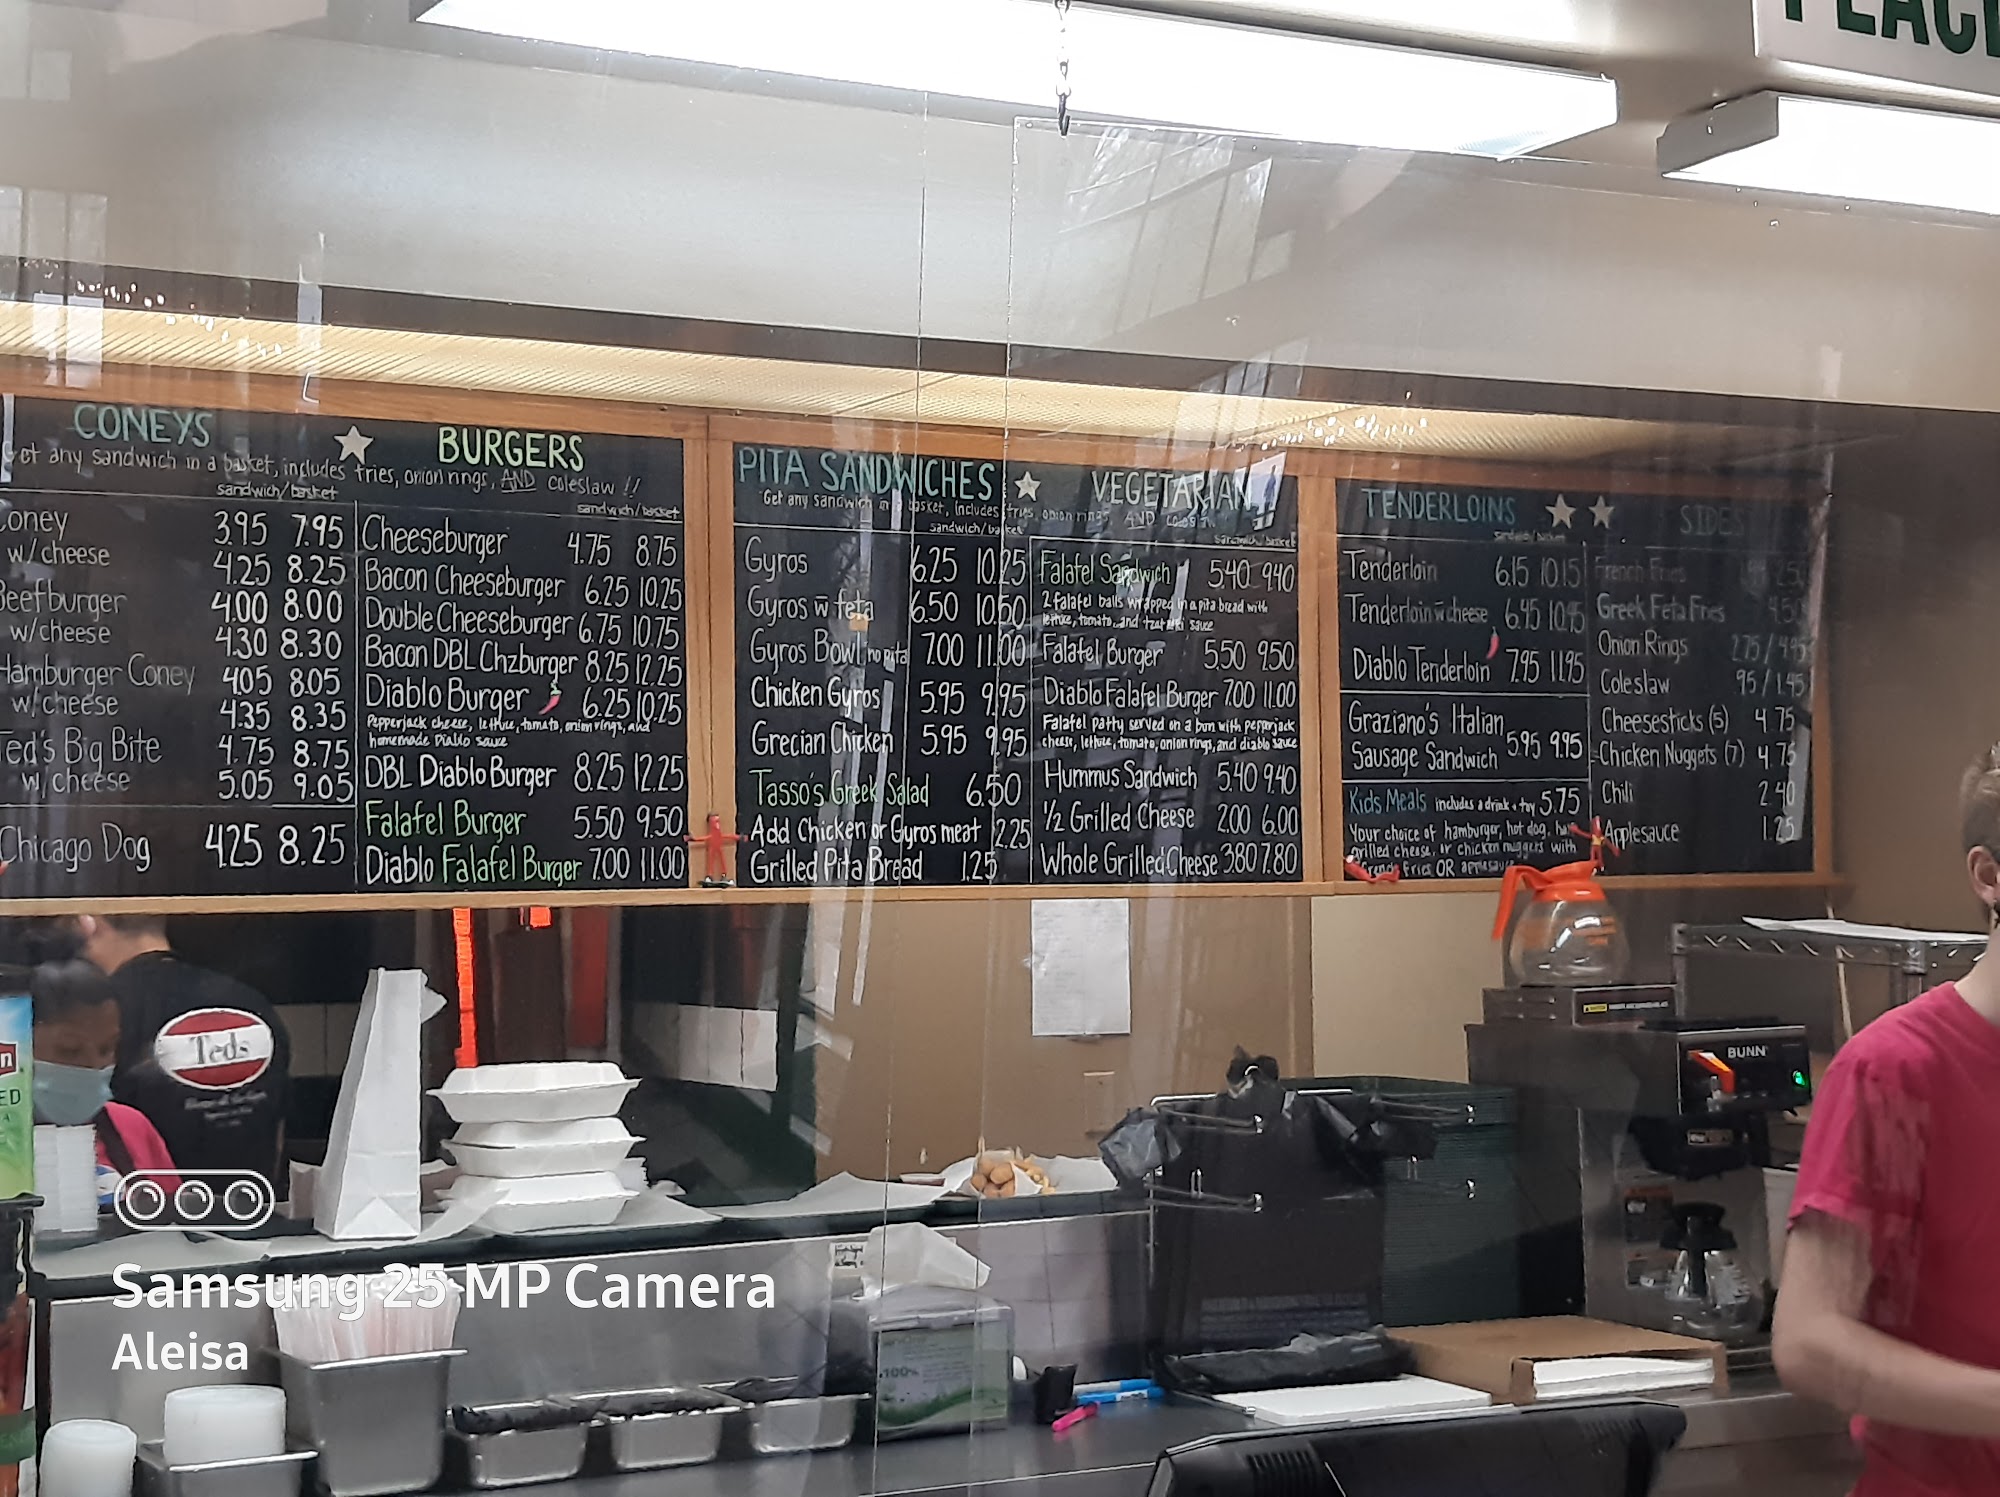 PLACE
CONEYS
BURGERS
Get any sandwich in a basket, includes fries, onion rings, AND coleslaw !!
sandwich/basket
Coney 3.95 7.95
w/cheese 4.25 8.25
Beefburger 4.00 8.00
w/cheese 4.30 8.30
Hamburger Coney 4.05 8.05
w/cheese 4.35 8.35
Ted's Big Bite 4.75 8.75
w/cheese 5.05 9.05
Chicago Dog 4.25 8.25
sandwich/basket
Cheeseburger 4.75 8.75
Bacon Cheeseburger 6.25 10.25
Double Cheeseburger 6.75 10.75
Bacon DBL Chzburger 8.25 12.25
Diablo Burger 6.25 10.25
Pepperjack cheese, lettuce, tomato, onion rings, and
homemade Diablo sauce
DBL Diablo Burger 8.25 12.25
Falafel Burger 5.50 9.50
Diablo Falafel Burger 7.00 11.00
PITA SANDWICHES
VEGETARIAN
Get any sandwich in a basket, includes fries, onion rings AND coleslaw
sandwich/basket
Gyros 6.25 10.25
Gyros w̄ feta 6.50 10.50
Gyros Bowl no pita 7.00 11.00
Chicken Gyros 5.95 9.95
Grecian Chicken 5.95 9.95
Tasso's Greek Salad 6.50
Add Chicken or Gyros meat 2.25
Grilled Pita Bread 1.25
sandwich/basket
Falafel Sandwich 5.40 9.40
2 falafel balls wrapped in a pita bread with
lettuce, tomato, and tzatziki sauce
Falafel Burger 5.50 9.50
Diablo Falafel Burger 7.00 11.00
Falafel patty served on a bun with pepperjack
cheese, lettuce, tomato, onion rings, and diablo sauce
Hummus Sandwich 5.40 9.40
1/2 Grilled Cheese 2.00 6.00
Whole Grilled Cheese 3.80 7.80
TENDERLOINS
SIDES
sandwich/basket
Tenderloin 6.15 10.15
Tenderloin w̄ cheese 6.45 10.45
Diablo Tenderloin 7.95 11.95
Graziano's Italian
Sausage Sandwich 5.95 9.95
Kids Meals includes a drink + toy 5.75
Your choice of hamburger, hot dog,
grilled cheese, or chicken nuggets with
french fries OR applesauce
French Fries
Greek Feta Fries 4.50
Onion Rings 2.75 / 4.95
Coleslaw .95 / 1.45
Cheesesticks (5) 4.75
Chicken Nuggets (7) 4.75
Chili 2.40
Applesauce 1.25
Teds
BUNN
100%
Samsung 25 MP Camera
Aleisa